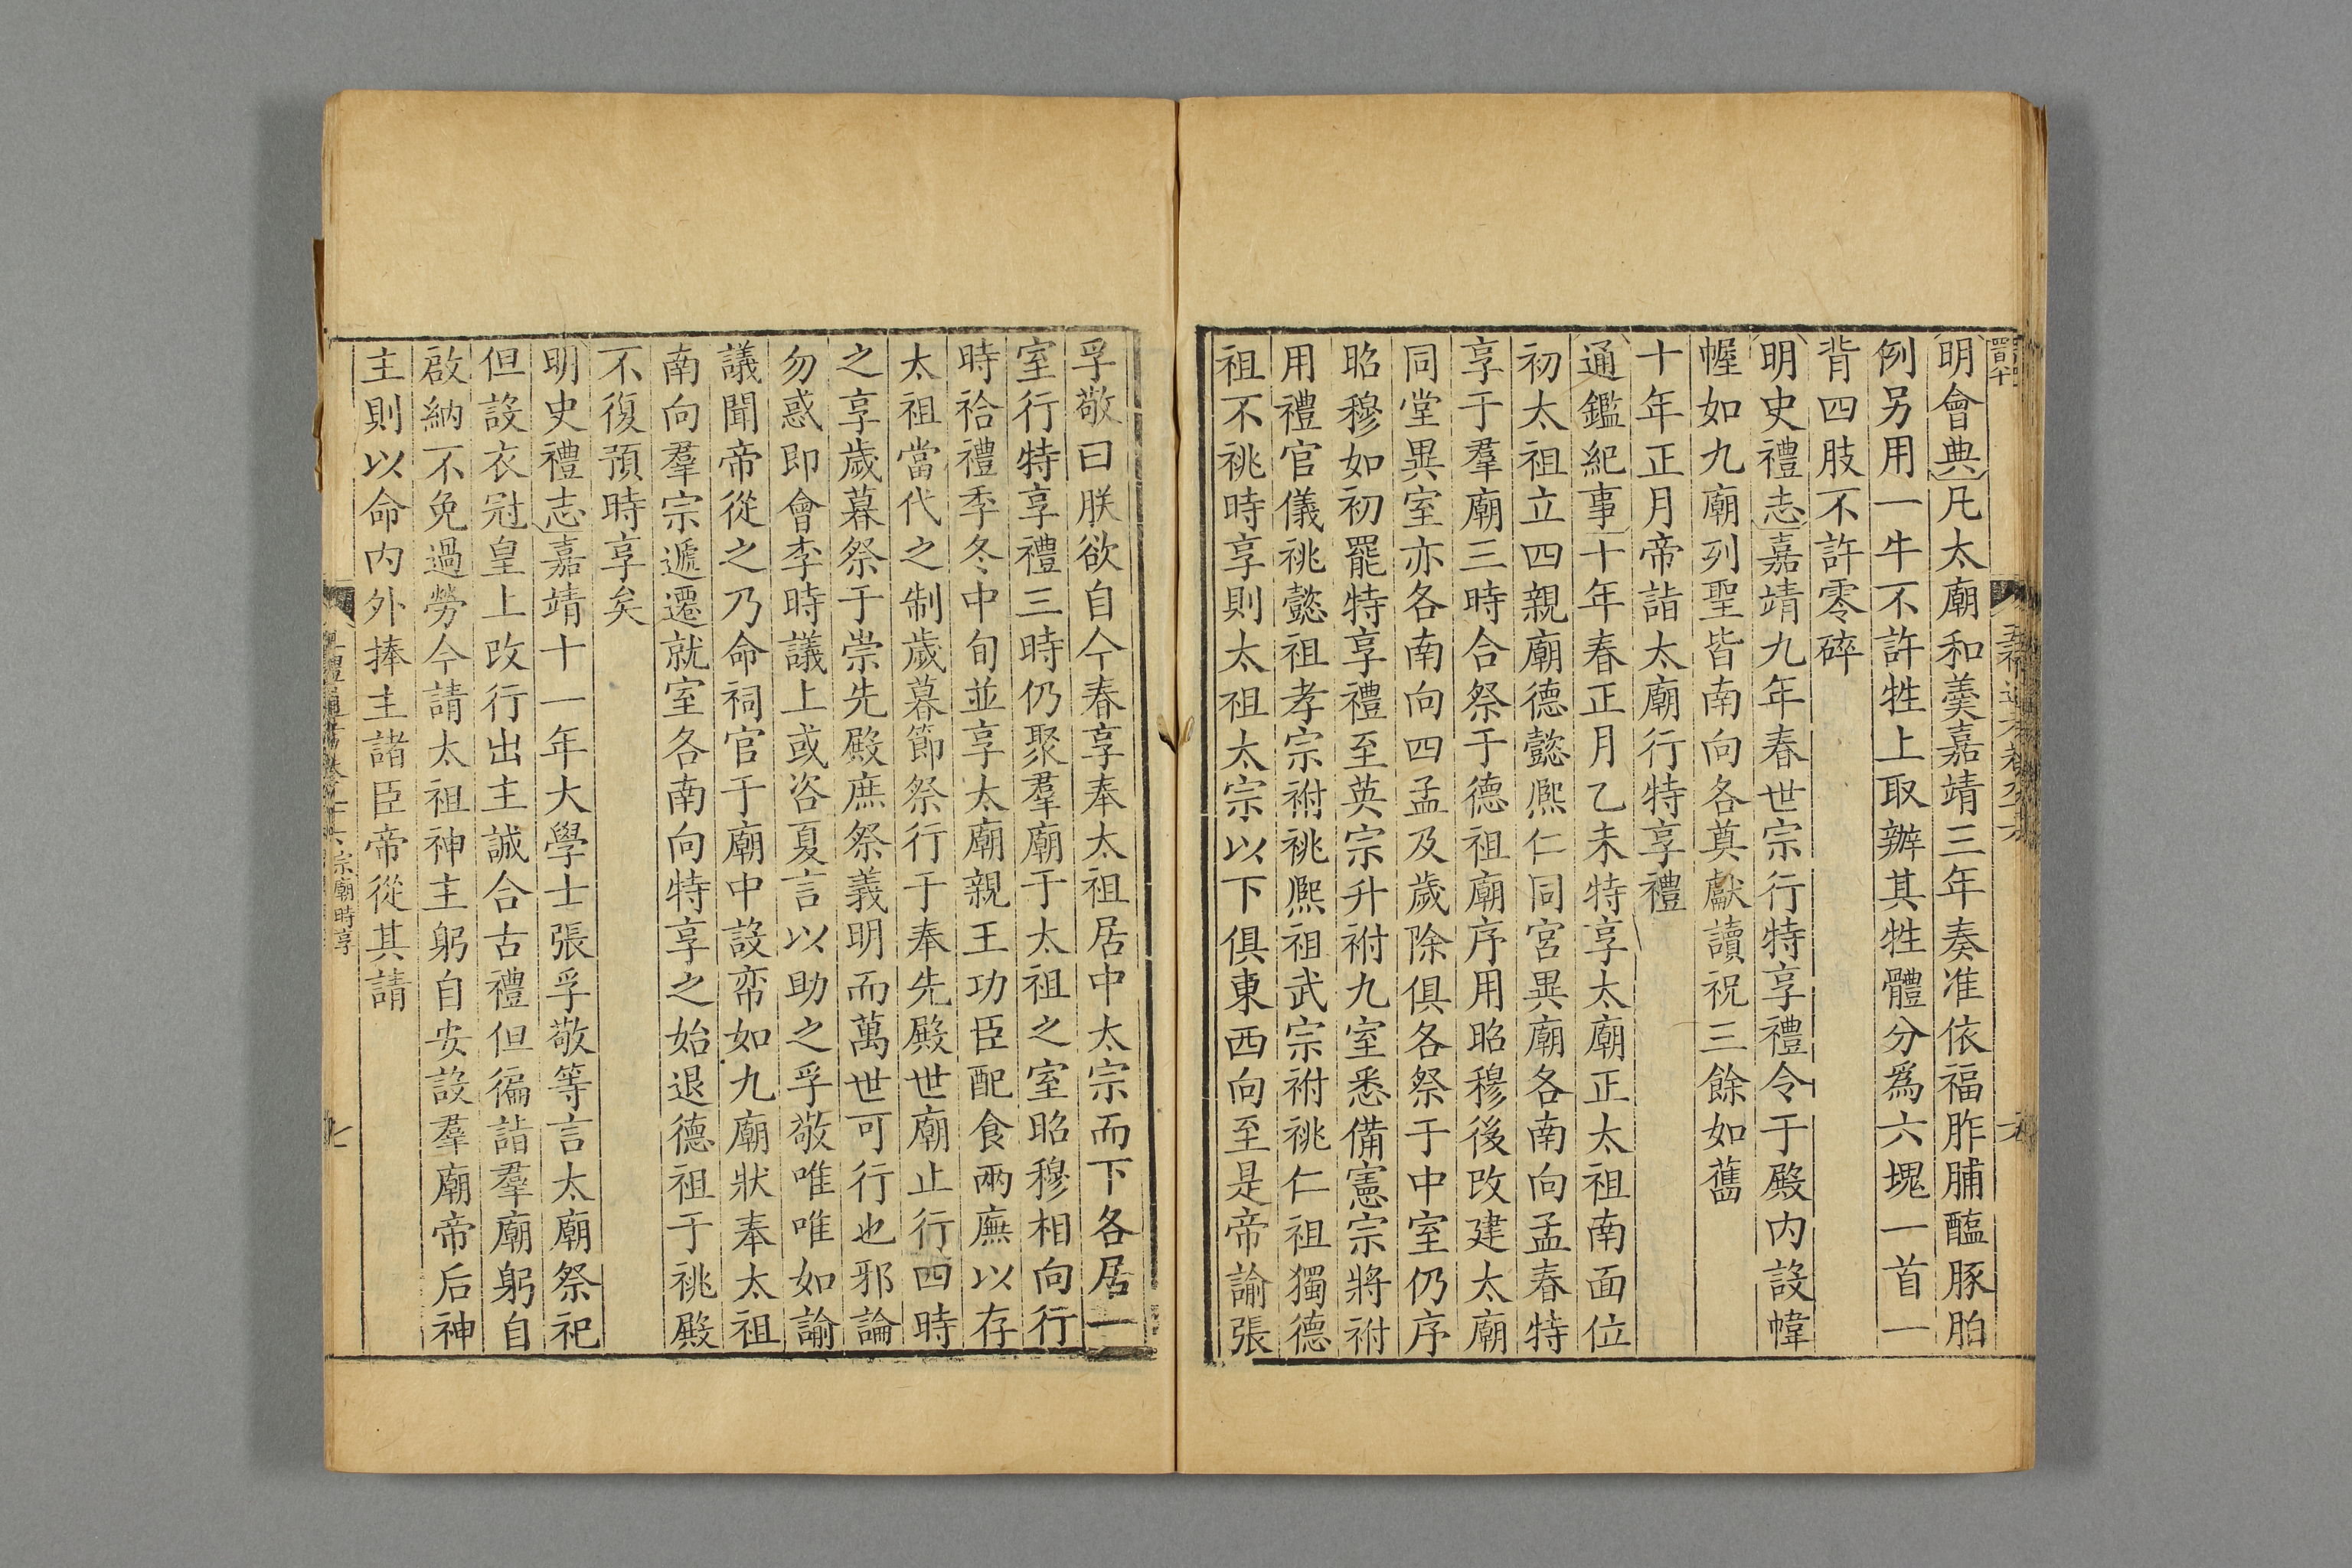 明會典凡太廟和羮嘉靖三年奏准依福胙脯醢豚胎
例另用一牛不許牲上取辦其牲體分爲六塊一首一
背四肢不許零碎
明史禮志嘉靖九年春世宗行特享禮令于殿内設幃
幄如九廟列聖皆南向各奠獻讀祝三餘如舊
十年正月帝詣太廟行特享禮
通鑑紀事十年春正月乙未特享太廟正太祖南面位
初太祖立四親廟德懿熈仁同宮異廟各南向孟春特
享于羣廟三時合祭于德祖廟序用昭穆後改建太廟
同堂異室亦各南向四孟及歲除俱各祭于中室仍序
昭穆如初罷特享禮至英宗升祔九室悉備憲宗將祔
用禮官儀祧懿祖孝宗祔祧熈祖武宗祔祧仁祖獨德
祖不祧時享則太祖太宗以下俱東西向至是帝諭張
孚敬曰朕欲自今春享奉太祖居中太宗而下各居一
室行特享禮三時仍聚羣廟于太祖之室昭穆相向行
時祫禮季冬中旬並享太廟親王功臣配食兩廡以存
太祖當代之制歲暮節祭行于奉先殿世廟止行四時
之享歲暮祭于崇先殿庶祭義明而萬世可行也邪論
勿惑即會李時議上或咨夏言以助之孚敬唯唯如諭
議聞帝從之乃命祠官于廟中設帟如九廟狀奉太祖
南向羣宗遞遷就室各南向特享之始退德祖于祧殿
不復預時享矣
明史禮志嘉靖十一年大學士張孚敬等言太廟祭祀
但設衣冠皇上改行出主誠合古禮但徧詣羣廟躬自
啟納不免過勞今請太祖神主躬自安設羣廟帝后神
主則以命内外捧主諸臣帝從其請
宗廟時享
七